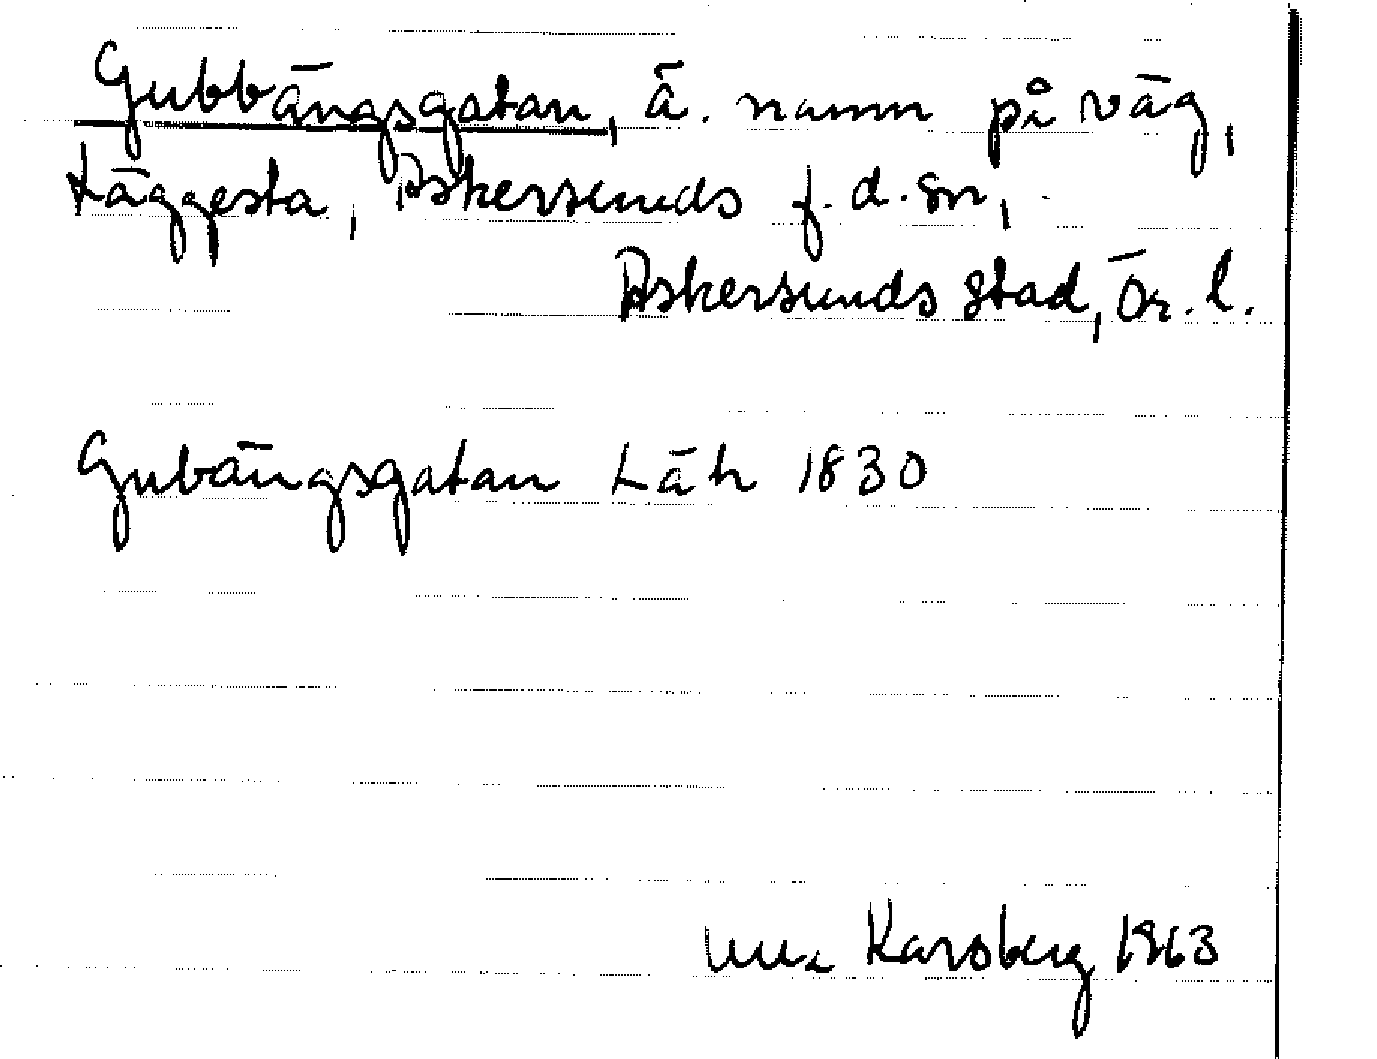 Gubbängsgatan, ä. namn på väg,
täggesta, Askersunds f.d. sn,
Askersunds stad, Ör. l.
Gubängsgatan LäH 1830
Karsberg 1963